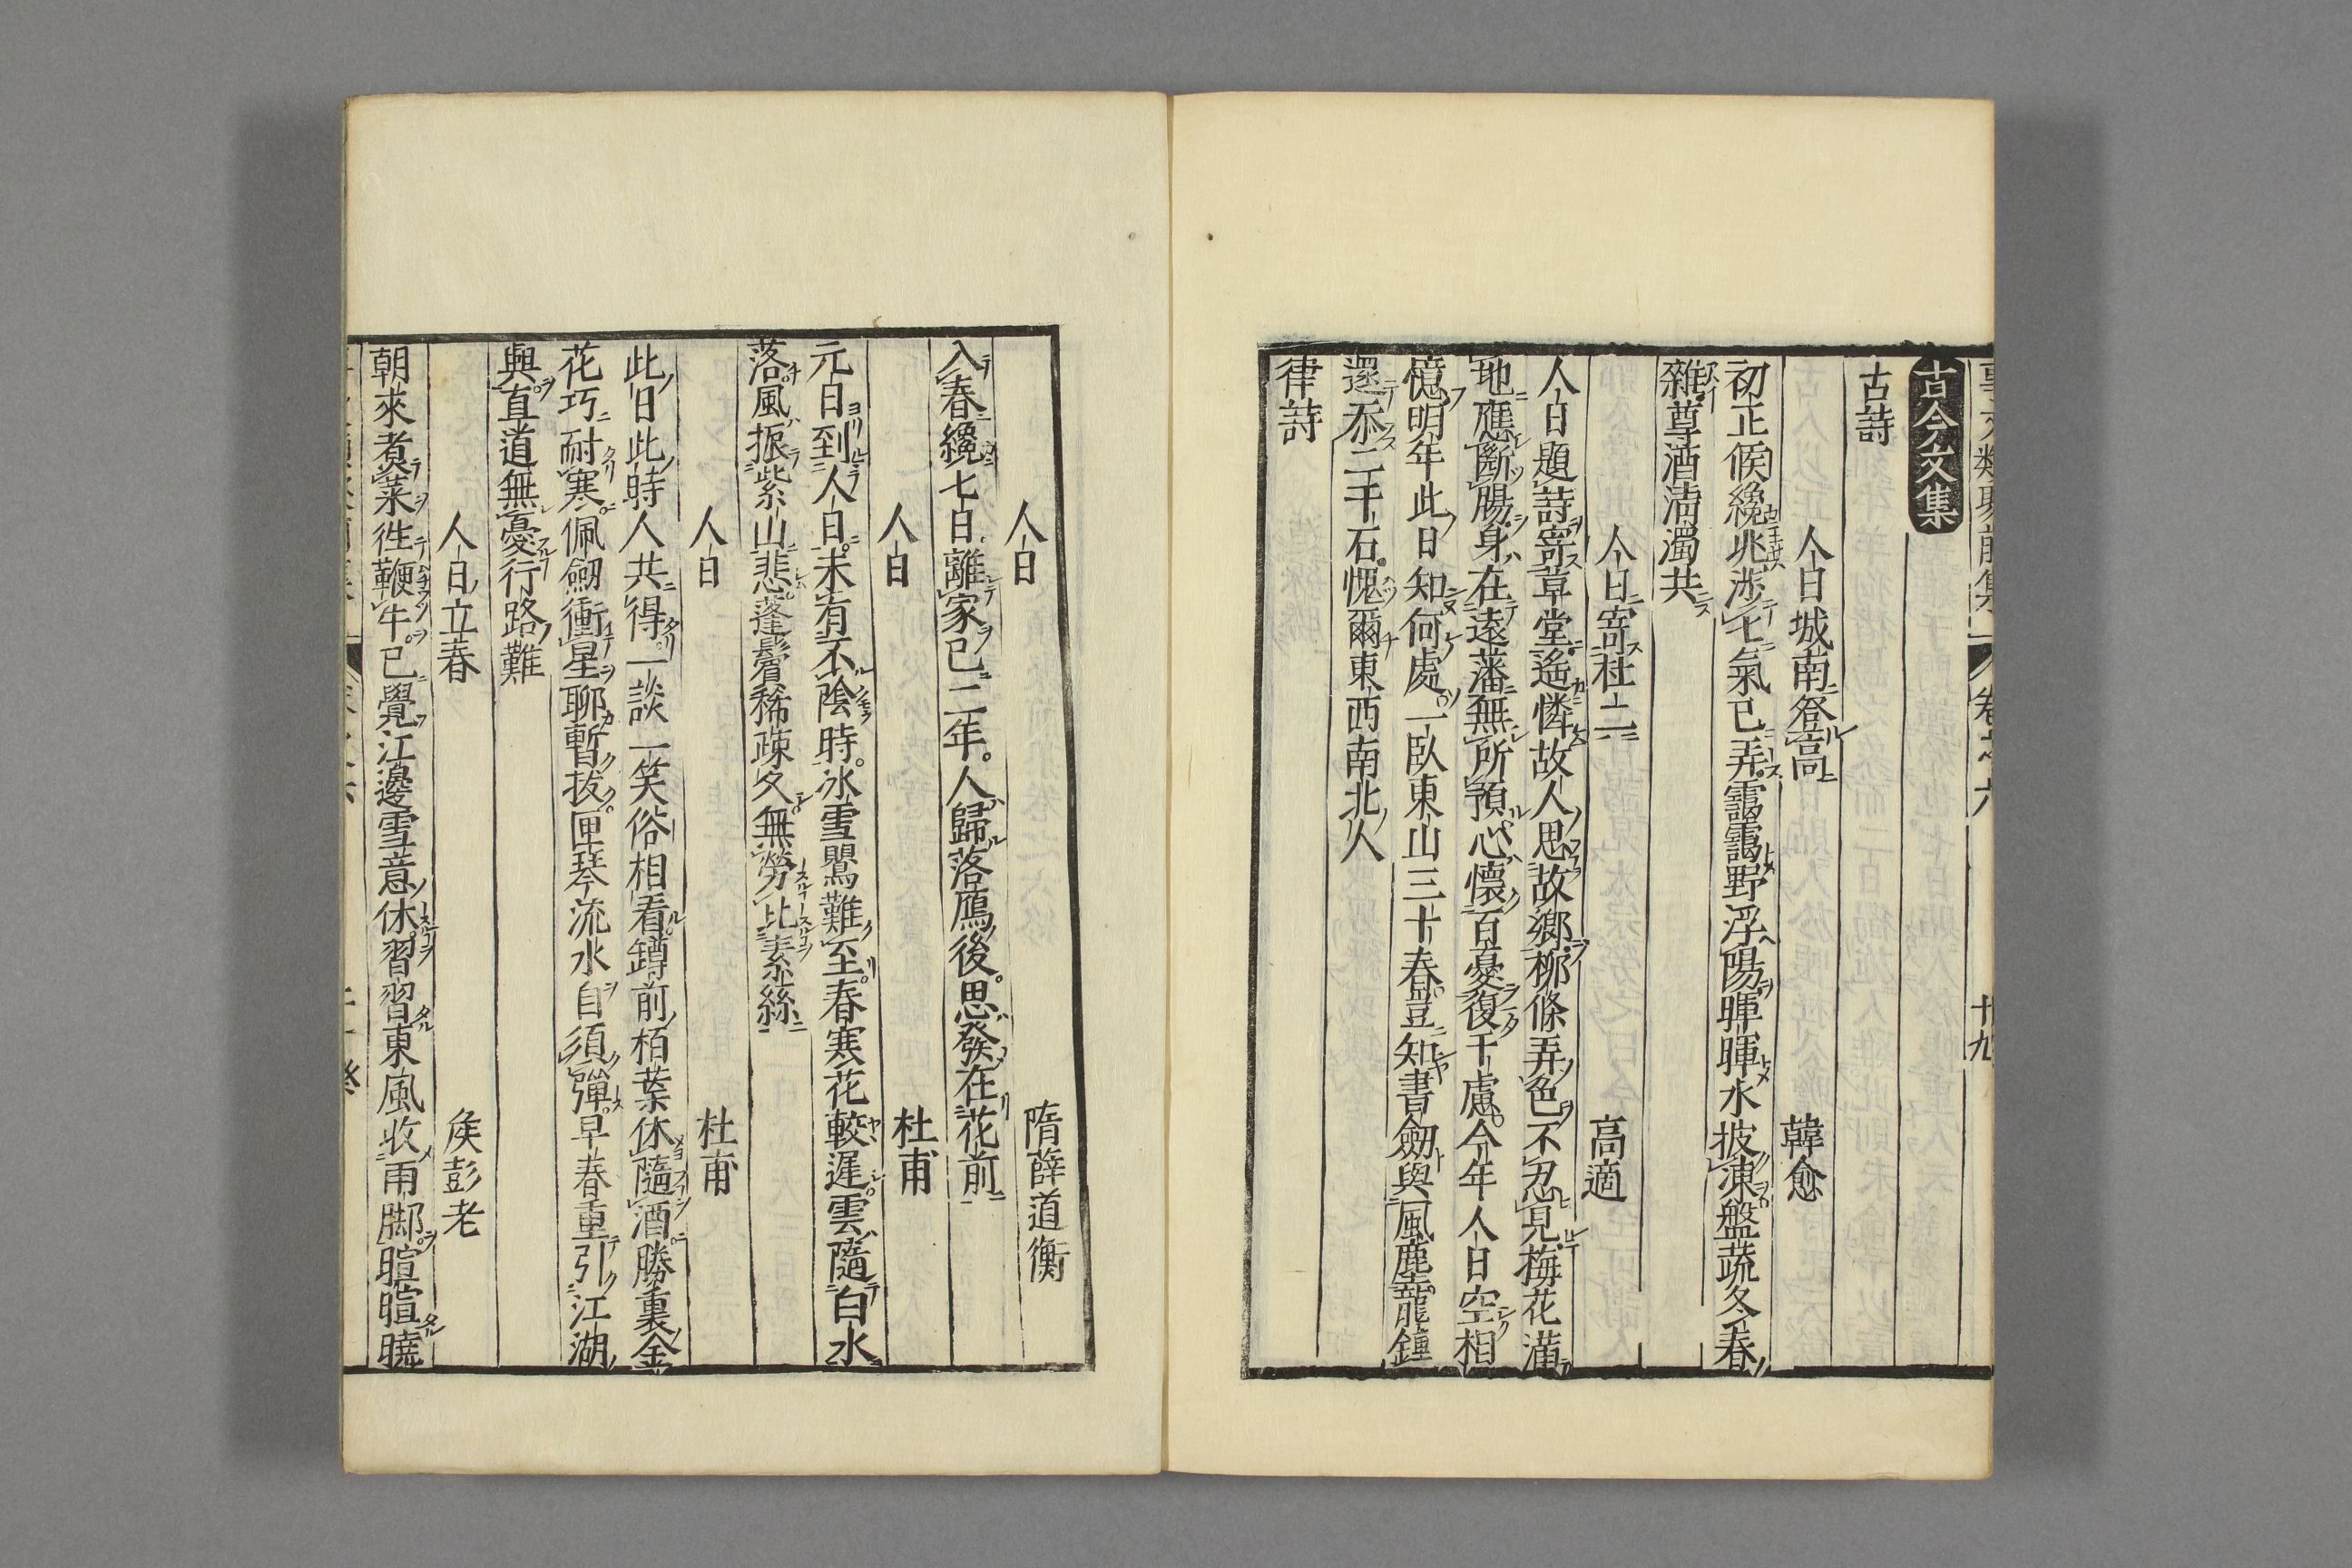 古今文集
古詩
人日城南登高　韓愈
初正候纔兆渉七氣已弄靄靄野浮陽暉暉水披凍盤蔬冬春
雜尊酒清濁共
人日寄杜二　高適
人日題詩寄草堂遙憐故人思故鄉柳條弄色不忍見梅花滿
地應斷腸身在遠藩無所預心懷百憂復千慮今年人日空相
憶明年此日知何處一臥東山三十春豈知書劒與風塵龍鍾
還忝二千石愧爾東西南北人
律詩
人日　隋薛道衡
入春纔七日離家已二年人歸落鴈後思發在花前
人日　杜甫
元日到人日未有不陰時冰雪鸎難至春寒花較遲雲隨白水
落風振紫山悲蓬鬢稀疎久無勞比素絲
人日　杜甫
此日此時人共得一談一笑俗相看罇前栢葉休隨酒勝裏金
花巧耐寒佩劒衝星聊暫拔匣琴流水自須彈早春重引江湖
興直道無憂行路難
人日立春　矦彭老
朝來煮菜徃鞭牛已覺江邊雪意休習習東風收雨脚暄暄曉